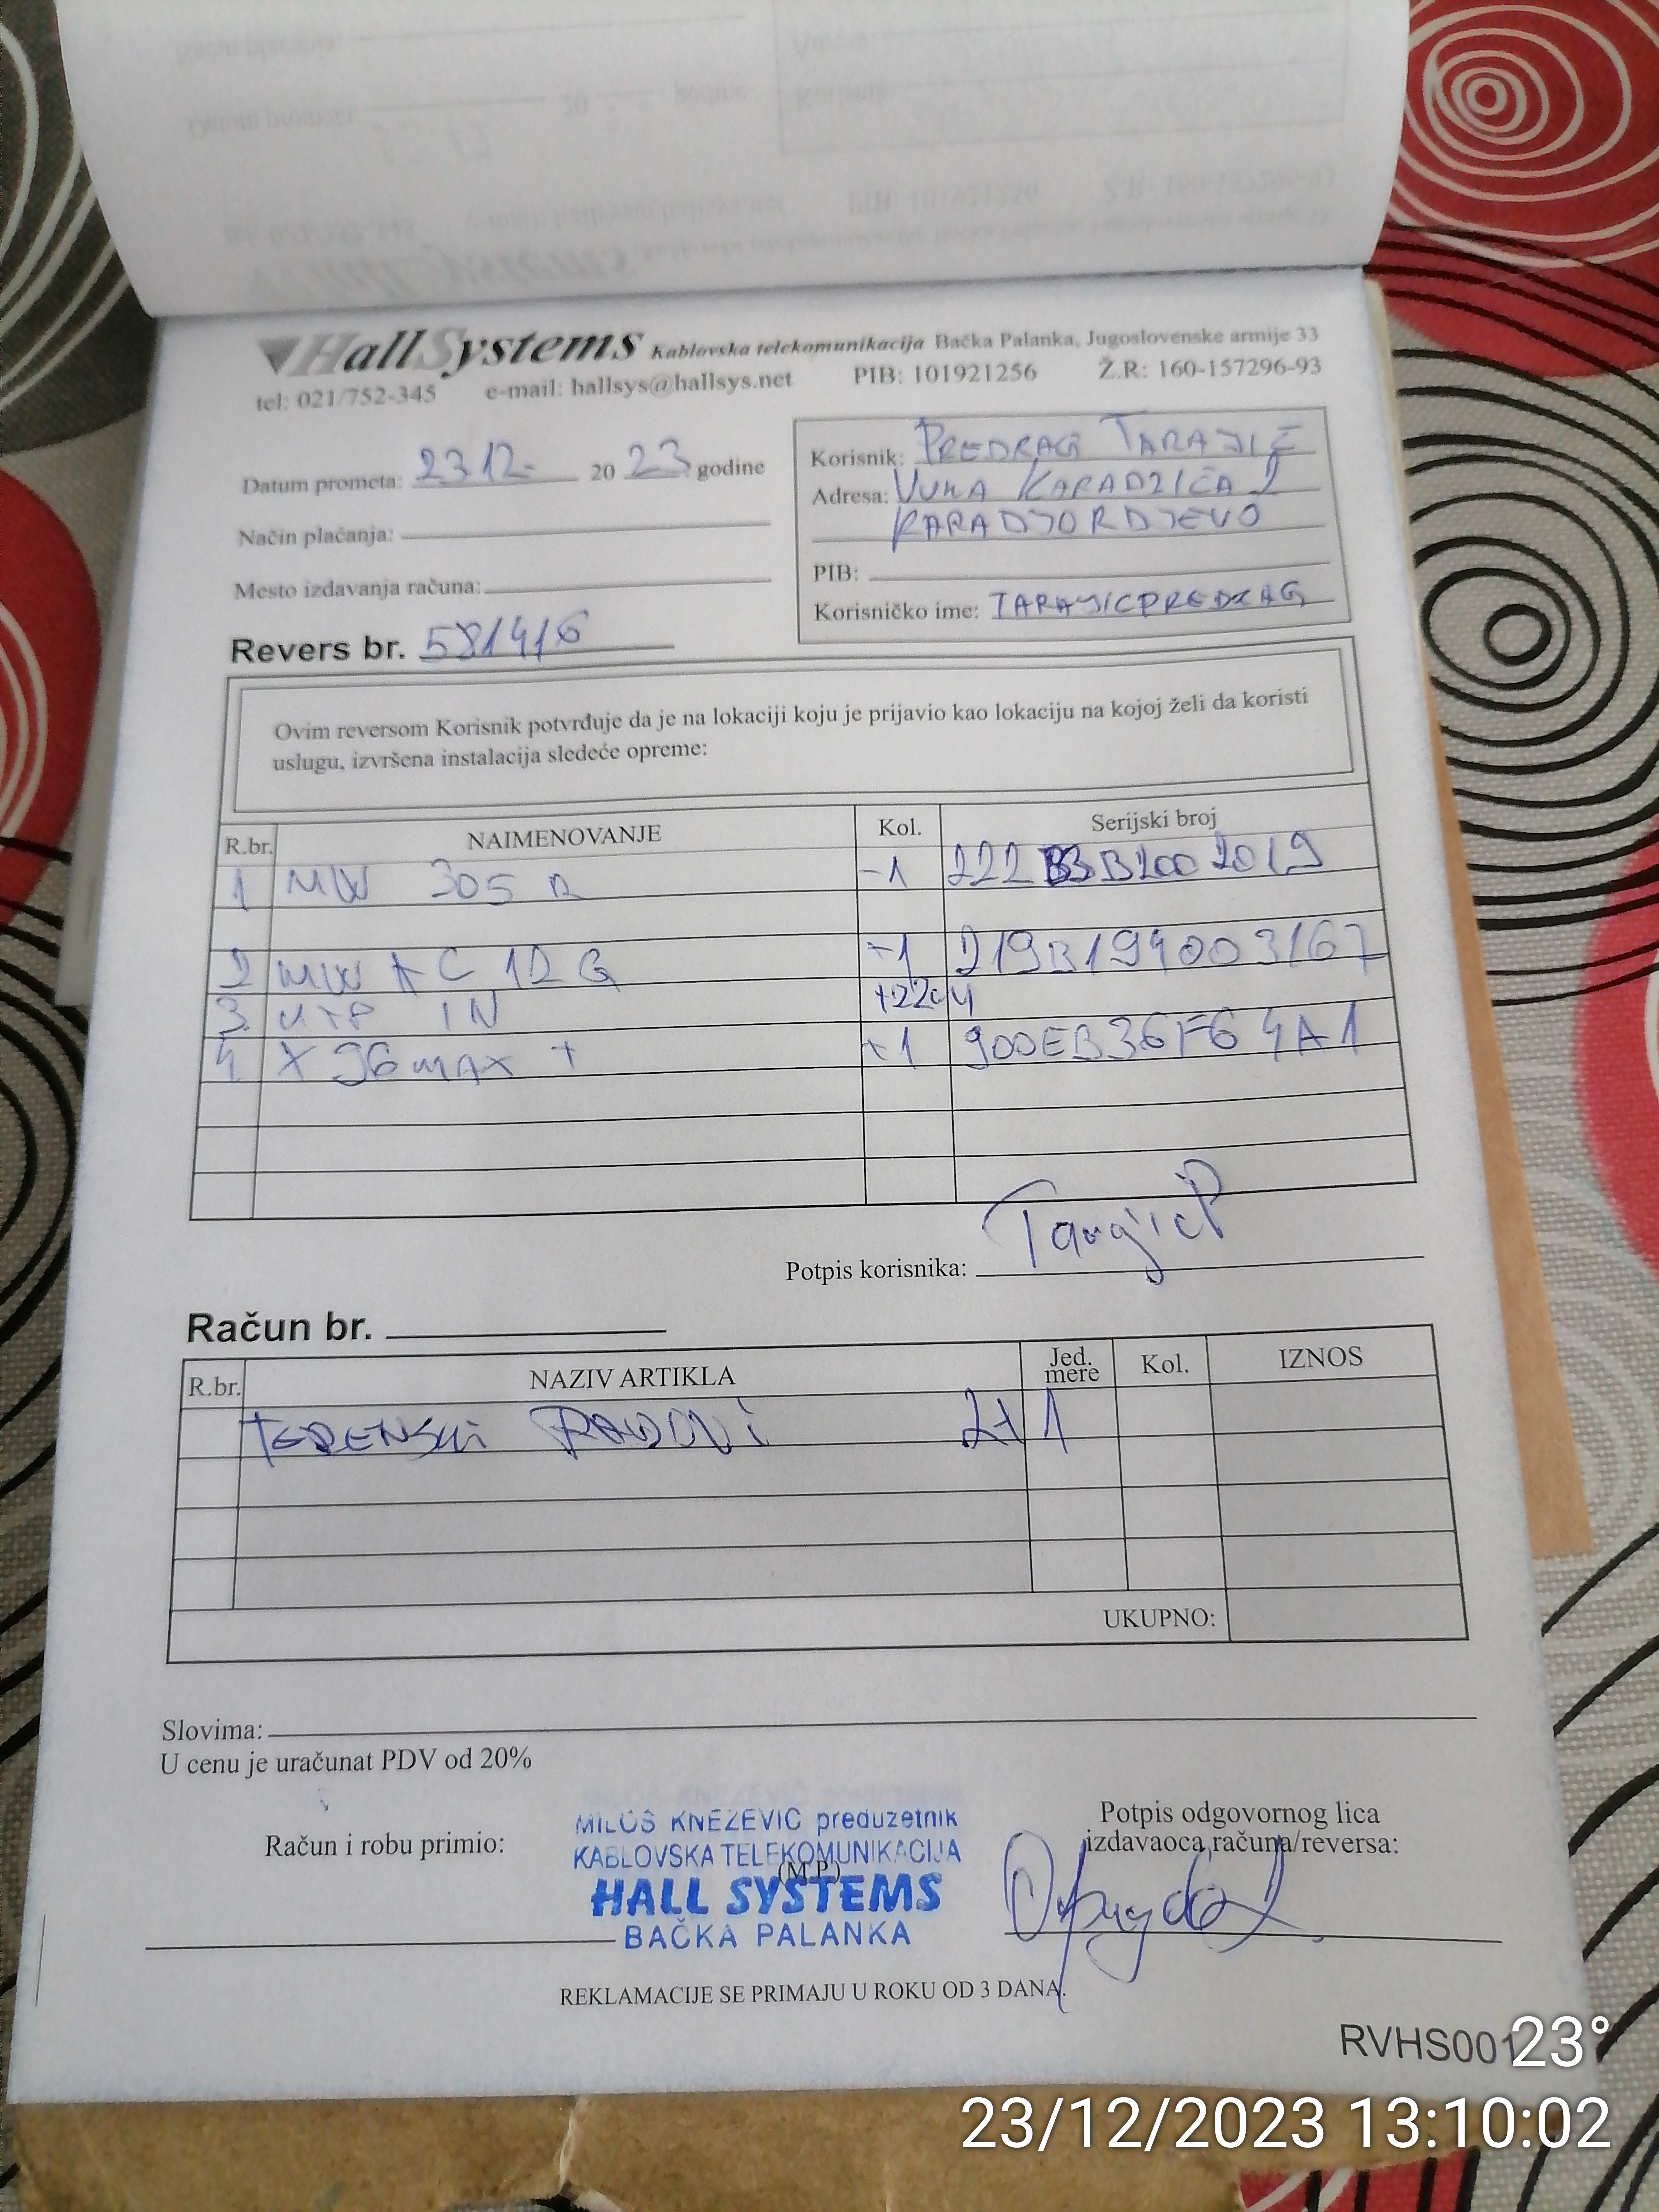 HallSystems Kablovska telekomunikacija Bačka Palanka, Jugoslovenske armije 33
tel: 021/752-345 e-mail: hallsys@hallsys.net PIB: 101921256 Ž.R: 160-157296-93
Datum prometa: 23 12. 20 23 godine
Način plaćanja:
Mesto izdavanja računa:
Revers br. 581416
Korisnik: PREDRAG TARAJIĆ
Adresa: VUKA KARADZIĆA 2
KARADJORDJEVO
PIB:
Korisničko ime: TARAJICPREDRAG
Ovim reversom Korisnik potvrđuje da je na lokaciji koju je prijavio kao lokaciju na kojoj želi da koristi
uslugu, izvršena instalacija sledeće opreme:
R.br. NAIMENOVANJE Kol. Serijski broj
1 MW 305 R -1 222 B3B200 2019
2 MW AC 12 G +1 219B194003167
3 UTP IN +22m
4 X 96 MAX + +1 900EB36F64A1
Potpis korisnika: Tarajic P
Račun br.
R.br. NAZIV ARTIKLA Jed. mere Kol. IZNOS
TERENSKI RADOVI 2H 1
UKUPNO:
Slovima:
U cenu je uračunat PDV od 20%
Račun i robu primio:
MILOŠ KNEŽEVIĆ preduzetnik
KABLOVSKA TELEKOMUNIKACIJA
(M.P.)
HALL SYSTEMS
BAČKA PALANKA
Potpis odgovornog lica
izdavaoca računa/reversa:
REKLAMACIJE SE PRIMAJU U ROKU OD 3 DANA.
RVHS001
23°
23/12/2023 13:10:02